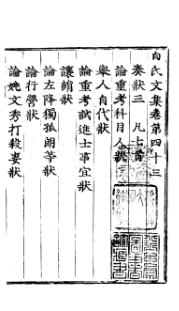 白氏文集卷第四十三
奏狀三　凡七首
論重考科目人狀
舉人自代狀
論重考試進士事宜狀
讓絹狀
論左降獨孤朗等狀
論行營狀
論姚文秀打殺妻狀